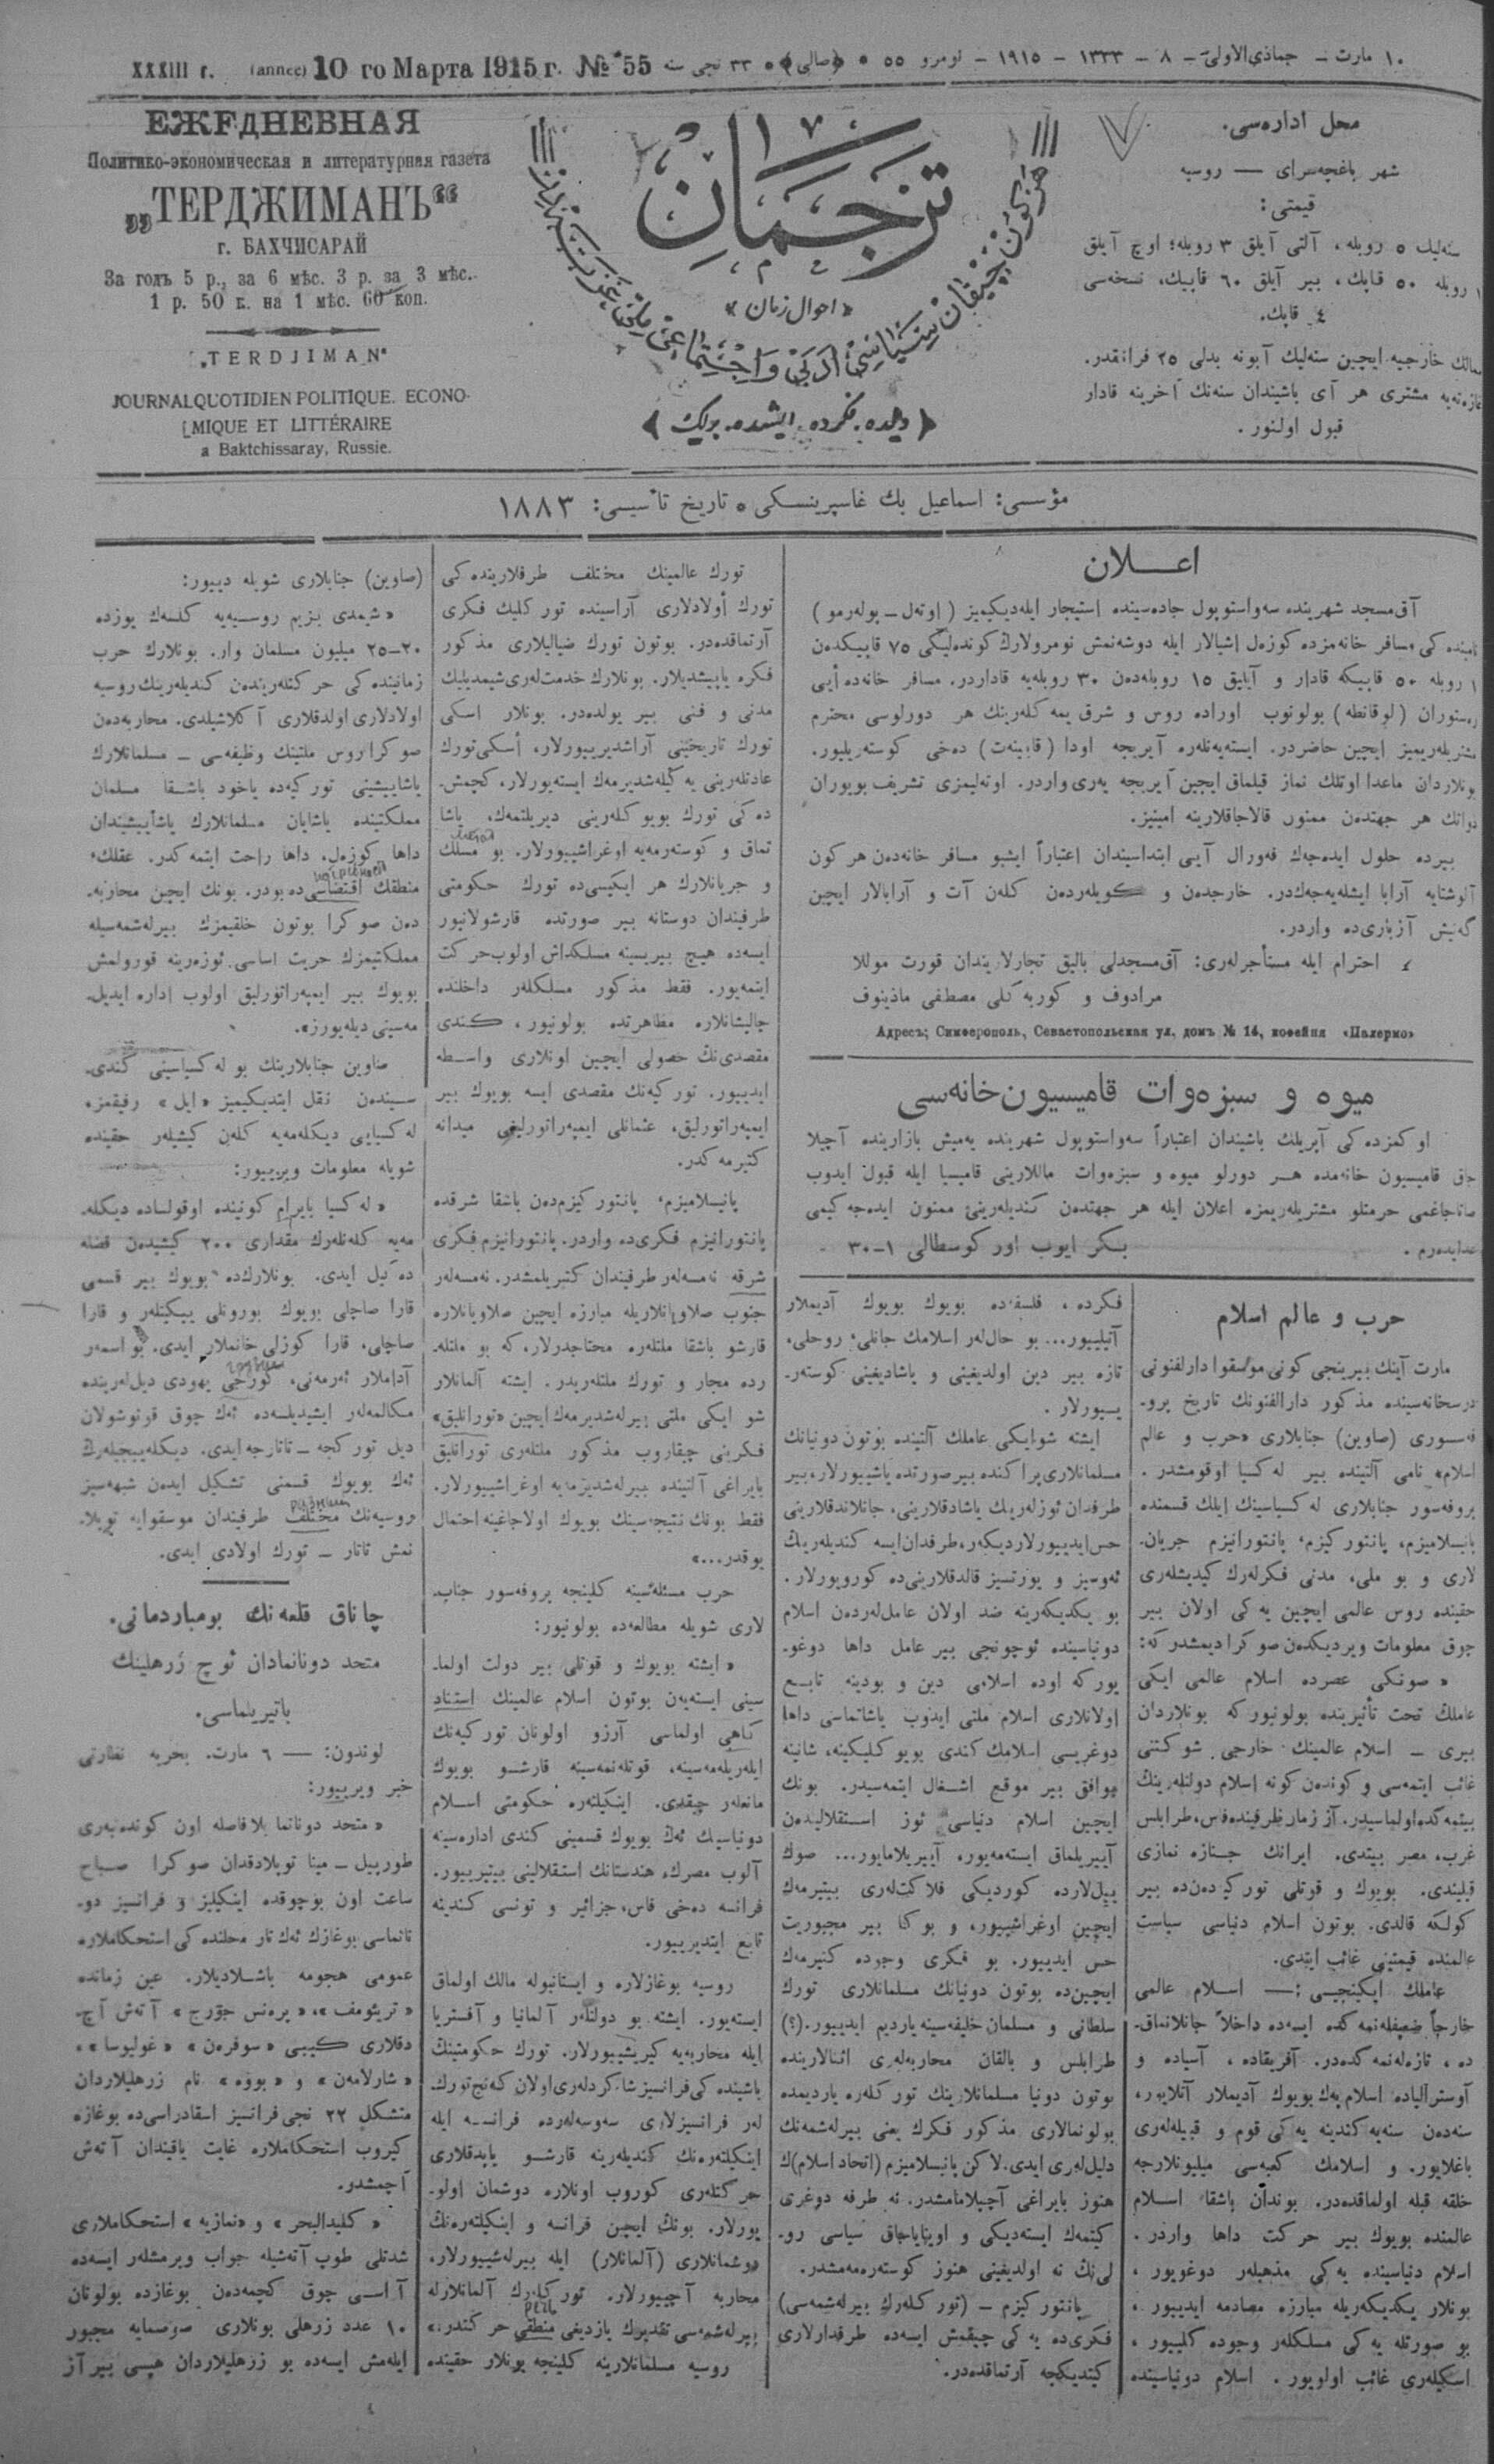 XXXIII г. (annee) 10 го Марта 1915 г. № 55
۱۰ مارت – جماذی‌الاولی – ۸ – ۱۳۳۳ – ۱۹۱۵ – نومرو ۵۵ • (صالی) • ۳۳ نجی سنه
ЕЖЕДНЕВНАЯ
Политико-экономическая и литературная газета
„ТЕРДЖИМАНЪ“
г. БАХЧИСАРАЙ
За годъ 5 р., за 6 мѣс. 3 р. за 3 мѣс.
1 р. 50 к. на 1 мѣс. 60 коп.
„TERDJIMAN“
JOURNAL QUOTIDIEN POLITIQUE. ECONO-
MIQUE ET LITTÉRAIRE
a Baktchissaray, Russie.
ترجمان
«احوال زمان»
(دیلده. فکرده. ایشده. برلك)
محل اداره‌سی.
شهر باغچه‌سرای — روسیه
قیمتی:
سنه‌لیك ٥ روبله، آلتی آیلق ۳ روبله؛ اوچ آیلق
۱ روبله ٥۰ قاپك، بیر آیلق ٦۰ قاپیك، نسخه‌سی
٤ قاپك.
ممالك خارجیه ایچین سنه‌لیك آبونه بدلی ۲٥ فرانقدر.
غازه‌ته‌یه مشتری هر آی باشیندان سنه‌نك آخرینه قادار
قبول اولنور.
مؤسسی: اسماعیل بك غاسپرینسکی • تاریخ تأسیسی: ۱۸۸۳
اعلان
آق‌مسجد شهرینده سه‌واستوپول جاده‌سینده استیجار ایله‌دیکیمیز (اوتەل – پولەرمو)
نامنده کی مسافر خانه‌مزده کوزەل إشیالار ایله دوشەنمش نومرولارك کونده‌لیکی ۷٥ قاپیکدەن
۱ روبله ٥۰ قاپیکه قادار و آیلیق ۱٥ روبله‌دەن ۳۰ روبله‌یه قاداردر. مسافر خانه‌ده أیی
رەستوران (لوقانطه) بولونوب اوراده روس و شرق یمه‌کلەرینك هر دورلوسی محترم
مشتریلەریمیز ایچین حاضردر. ایستەیەنلەره آیریجه اودا (قابینەت) دەخی کوستەریلیور.
بونلاردان ماعدا اوتلك نماز قیلماق ایچین آیریجه یەری واردر. اوتەلیمزی تشریف بویوران
ذواتك هر جهتدەن ممنون قالاجاقلارینه امینیز.
بیرده حلول ایده‌جك فەورال آیی ابتداسیندان اعتباراً ایشبو مسافر خانه‌دەن هر کون
آلوشتایه آرابا ایشله‌یه‌جەك‌در. خارجدەن و کویلەردەن کلەن آت و آرابالار ایچین
گەنیش آزباری‌ده واردر.
احترام ایله مستأجرلەری: آق‌مسجدلی بالیق تجارلاریندان قورت موللا
مرادوف و کوربه‌کلی مصطفی ماذینوف
Адресъ; Симферополь, Севастопольская ул. домъ № 14, кофейня «Палермо»
میوه و سبزه‌وات قامیسیون‌خانه‌سی
او کمزده کی آپریلك باشیندان اعتباراً سه‌واستوپول شهرینده یەمیش بازارینده آچیلا
جاق قامیسیون خانه‌مده هر دورلو میوه و سبزه‌وات ماللارینی قامیسیا ایله قبول ایدوب
صاتاجاغمی حرمتلو مشتریلەریمزه اعلان ایله هر جهتدەن کندیلەرینی ممنون ایده‌جه کیمی
بکر ایوب اور کوسطالی ۱–۳۰
حرب و عالم اسلام
مارت آینك بیرینجی کونی موسقوا دارلفنونی
درسخانه‌سینده مذکور دارالفنونك تاریخ پرو-
فەسوری (صاوین) جنابلاری «حرب و عالم
اسلام» نامی آلتینده بیر لەکسیا اوقومشدر.
پروفەسور جنابلاری لەکسیاسینك إیلك قسمنده
پانیسلامیزم، پانتورکیزم، پانتورانیزم جریان-
لاری و بو ملی، مدنی فکرلەرك کیدیشلەری
حقینده روس عالمی ایچین یەکی اولان بیر
چوق معلومات ویردیکدەن صوکرا دیمشدر که:
« صوتکی عصرده اسلام عالمی ایکی
عاملك تحت تأثیرینده بولونیور که بونلاردان
بیری – اسلام عالمینك خارجی شوکتنی
غائب ایتمەسی و کوندەن کونه اسلام دولتلەرینك
بیتمەکده اولماسیدر. آز زمان ظرفینده فاس، طرابلس
غرب، مصر بیتدی. ایرانك جنازه نمازی
قیلیندی. بویوك و قوتلی تورکیه‌دەن‌ده بیر
کولکه قالدی. بوتون اسلام دنیاسی سیاست
عالمنده قیمتینی غائب ایتدی.
عاملك ایکینجیسی: — اسلام عالمی
خارجاً ضعیفلەنمەکده ایسه‌ده داخلاً جانلانماق-
ده، تازه‌لەنمەکده‌در. آفریقاده، آسیاده و
آوسترالیاده اسلام پەك بویوك آدیملار آتلایور،
سنه‌دەن سنه‌یه کندینه یەکی قوم و قبیله‌لەری
باغلایور. و اسلامك کعبه‌سی میلیونلارجه
خلقه قبله اولماقده‌در. بوندان باشقا اسلام
عالمنده بویوك بیر حرکت داها واردر.
اسلام دنیاسینده یەکی مذهبلەر دوغویور،
بونلار یکدیکەریله مبارزه مصادمه ایدییور،
بو صورتله یەکی مسلکلەر وجوده کلییور،
اسکیلەری غائب اولویور. اسلام دونیاسینده
فکرده، فلسفه‌ده بویوك بویوك آدیملار
آتیلییور... بو حال‌لەر اسلامك جانلی، روحلی،
تازه بیر دین اولدیغینی و یاشادیغینی کوستەر-
ییورلار.
ایشته شوایکی عاملك آلتینده بوتون دونیانك
مسلمانلاری پراکنده بیر صورتده یاشییورلار، بیر
طرفدان ئوزلەرینك یاشادقلارینی، جانلاندقلارینی
حس ایدییورلار دیکەر طرفدان ایسه کندیلەرینك
ئەوسیز و یورتسیز قالدقلارینی‌ده کورویورلار.
بو یکدیکەرینه ضد اولان عامل‌لەردەن اسلام
دونیاسینده ئوچونجی بیر عامل داها دوغو-
یور که اوده اسلامی دین و بودینه تابع
اولانلاری اسلام ملتی ایدوب یاشاتماسی داها
دوغریسی اسلامك کندی بویوکلیکینه، شانینه
موافق بیر موقع اشغال ایتمەسیدر. بونك
ایچین اسلام دنیاسی ئوز استقلالیدەن
آییریلماق ایستەمەیور، آییریلامایور... صوك
ییل‌لارده کوردیکی فلاکت‌لەری بیتیرمەك
ایچین اوغراشییور، و بوکا بیر مجبوریت
حس ایدییور. بو فکری وجوده کتیرمەك
ایچین‌ده بوتون دونیانك مسلمانلاری تورك
سلطانی و مسلمان خلیفه‌سینه یاردیم ایدییور. (؟)
طرابلس و بالقان محاربه‌لەری اثنالارینده
بوتون دونیا مسلمانلارینك تورکلەره یاردیمده
بولونمالاری مذکور فکرك یعنی بیرلەشمەنك
دلیل‌لەری ایدی. لاکن پانیسلامیزم (اتحاد اسلام)ك
هنوز بایراغی آچیلامامشدر. نه طرفه دوغری
کیتمەك ایستەدیکی و اوینایاجاق سیاسی رو-
لی‌نك نه اولدیغینی هنوز کوستەرەمەمشدر.
پانتورکیزم – (تورکلەرك بیرلەشمەسی)
فکری‌ده یەکی چیقمش ایسه‌ده طرفدارلاری
کیتدیکجه آرتماقده‌در.
تورك عالمینك مختلف طرفلارینده کی
تورك أولادلاری آراسینده تورکلیك فکری
آرتماقده‌در. بوتون تورك ضیالیلاری مذکور
فکره یاپیشدیلار. بونلارك خدمت‌لەری شیمدیلیك
مدنی و فنی بیر یولده‌در. بونلار اسکی
تورك تاریخینی آراشدیرییورلار، أسکی تورك
عادتلەرینی یەکیله‌شدیرمەك ایستەیورلار، کچمش-
ده کی تورك بویوکلەرینی دیریلتمەك، یاشا
تماق و کوستەرمەیه اوغراشییورلار. بو مسلك
و جریانلارك هر ایکیسی‌ده تورك حکومتی
طرفیندان دوستانه بیر صورتده قارشولانیور
ایسه‌ده هیچ بیریسینه مسلکداش اولوب حرکت
ایتمەیور. فقط مذکور مسلکلەر داخلنده
چالیشانلاره مظاهرتده بولونیور، کندی
مقصدی‌نك حصولی ایچین اونلاری واسطه
ایدییور. تورکیه‌نك مقصدی ایسه بویوك بیر
ایمپەراتورلیق، عثمانلی ایمپەراتورلیغی میدانه
کتیرمەکدر.
پانیسلامیزم، پانتورکیزم‌دەن باشقا شرقده
پانتورانیزم فکری‌ده واردر. پانتورانیزم فکری
شرقه نەمسه‌لەر طرفیندان کتیریلمشدر. نەمسه‌لەر
جنوب صلاویانلاریله مبارزه ایچین صلاویانلاره
قارشو باشقا ملتلەره محتاجدرلار، که بو ملتلە-
رده مجار و تورك ملتلەریدر. ایشته آلمانلار
شو ایکی ملتی بیرلەشدیرمەك ایچین «تورانلیق»
فکرینی چیقاروب مذکور ملتلەری تورانلیق
بایراغی آلتینده بیرلەشدیرمەیه اوغراشییورلار.
فقط بونك نتیجه‌سینك بویوك اولاجاغینه احتمال
یوقدر...»
حرب مسئله‌سینه کلینجه پروفەسور جناب-
لاری شویله مطالعه‌ده بولونیور:
« ایشته بویوك و قوتلی بیر دولت اولما-
سینی ایستەیەن بوتون اسلام عالمینك استناد
کاهی اولماسی آرزو اولونان تورکیه‌نك
ایلەریله‌مەسینه، قوتلەنمەسینه قارشو بویوك
مانعلەر چیقدی. اینکیلتەره حکومتی اسلام
دونیاسینك ئەك بویوك قسمینی کندی اداره‌سینه
آلوب مصرك، هندستانك استقلالینی بیتیرییور.
فرانسه دەخی فاس، جزائیر و تونسی کندینه
تابع ایتدیرییور.
روسیه بوغازلاره و ایستانبوله مالك اولماق
ایستەیور. ایشته بو دولتلەر آلمانیا و آفستریا
ایله محاربه‌یه کیریشییورلار. تورك حکومتینك
باشنده کی فرانسیز شاکردلەری اولان کەنج تورك-
لەر فرانسیزلاری سەوسەلەرده فرانسه ایله
اینکیلتەرەنك کندیلەرینه قارشو یاپدقلاری
حرکتلەری کوروب اونلاره دوشمان اولو-
یورلار. بونك ایچین فرانسه و اینکیلتەرەنك
دوشمانلاری (آلمانلار) ایله بیرلەشییورلار،
محاربه آچییورلار. تورکلەرك آلمانلارله
بیرلەشمەسی تقدیرك یازدیغی منطقی حرکتدر.»
روسیه مسلمانلارینه کلینجه بونلار حقینده
(صاوین) جنابلاری شویله دییور:
« شیمدی بزیم روسیه‌یه کلمەك یوزده
۲۰–۲٥ میلیون مسلمان وار. بونلارك حرب
زمانینده کی حرکتلەریندەن کندیلەرینك روسیه
اولادلاری اولدقلاری آکلاشیلدی. محاربه‌دەن
صوکرا روس ملتینك وظیفه‌سی – مسلمانلارك
یاشاییشینی تورکیه‌ده یاخود باشقا مسلمان
مملکتینده یاشایان مسلمانلارك یاشأییشیندان
داها کوزەل، داها راحت ایتمەکدر. عقلك،
منطقك اقتضاسی‌ده بودر. بونك ایچین محاربه-
دەن صوکرا بوتون خلقیمزك بیرلەشمەسیله
مملکتیمزك حریت اساسی ئوزەرینه قورولمش
بویوك بیر ایمپەراتورلیق اولوب إداره ایدیل-
مەسینی دیله‌یورز».
صاوین جنابلارینك بو لەکسیاسینی کندی-
سیندەن نقل ایتدیکیمیز «ایل» رفیقمز،
لەکسیایی دیکله‌مەیه کلەن کیشیلەر حقینده
شویله معلومات ویرییور:
« لەکسیا بایرام کونینده اوقولساده دیکله-
مەیه کلەنلەرك مقداری ۲۰۰ کیشیدەن فضله
دەکیل ایدی. بونلارك‌ده بویوك بیر قسمی
قارا صاچلی بویوك بورونلی ییکیتلەر و قارا
صاچلی، قارا کوزلی خانملار ایدی. بو اسمەر
آداملار ئەرمەنی، کورجی یهودی دیل‌لەرینده
مکالمه‌لەر ایشیدیلسه‌ده ئەك چوق قونوشولان
دیل تورکجه – تاتارجه ایدی. دیکله‌ییجیلەرك
ئەك بویوك قسمنی تشکیل ایدەن شبهه‌سیز
روسیه‌نك مختلف طرفیندان موسقوایه توپلا-
نمش تاتار – تورك اولادی ایدی.
چاناق قلعه‌نك بومباردمانی.
متحد دونانمادان ئوچ زرهلینك
باتیریلماسی.
لوندون: — ٦ مارت. بحریه نظارتی
خبر ویرییور:
« متحد دونانما بلا فاصله اون کوندەنبەری
طورپیل – مینا توپلادقدان صوکرا صباح
ساعت اون بوچوقده اینکیلیز و فرانسیز دو-
نانماسی بوغازك ئەك تار محلنده کی استحکاملاره
عمومی هجومه باشلادیلار. عین زمانده
« تریئومف »، « پرەنس جۆرج » آتەش آچ-
دقلاری کیبی « سوفرەن » « غولیوسا »،
« شارلامەن » و « بووه » نام زرهلیلاردان
متشکل ۲۲ نجی فرانسیز اسقادراسی‌ده بوغازه
کیروب استحکاملاره غایت یاقیندان آتەش
آچمشدر.
« کلیدالبحر » و « نمازیه » استحکاملاری
شدتلی طوپ آتەشیله جواب ویرمشلەر ایسه‌ده
آراسی چوق کچمەدەن بوغازده بولونان
۱۰ عدد زرهلی بونلاری صوصمایه مجبور
ایله‌مش ایسه‌ده بو زرهلیلاردان هپسی بیر آز